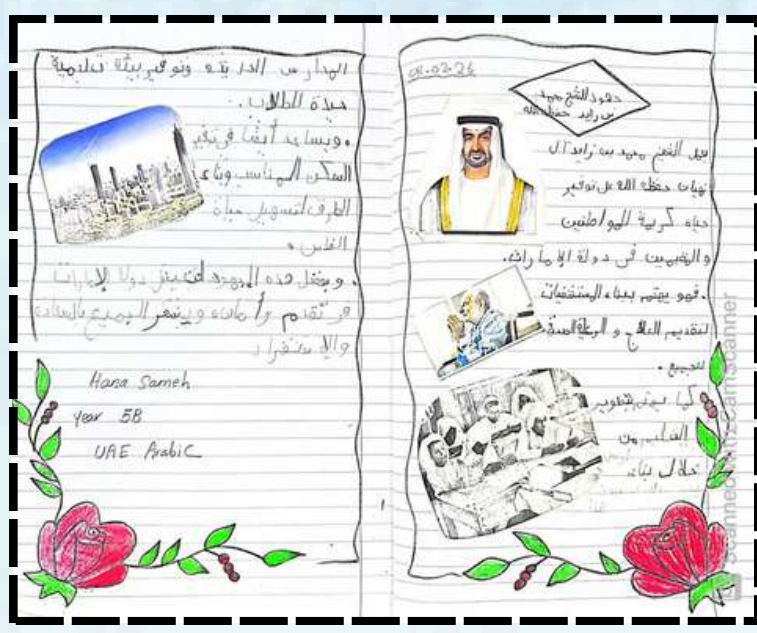 08-02-26
جهود الشيخ محمد
بن زايد حفظه الله
يعمل الشيخ محمد بن زايد آل
نهيان حفظه الله على توفير
حياة كريمة للمواطنين
والمقيمين في دولة الإمارات.
. فهو يهتم ببناء المستشفيات
لتقديم العلاج و الرعاية الصحية
للجميع .
كما يهتم بتطوير
التعليم من
خلال بناء
المدارس الحديثه وتوفير بيئة تعليمية
جيدة للطلاب .
. ويساعد أيضًا في توفير
السكن المناسب وبناء
الطرق لتسهيل حياة
الناس .
. وبفضل هذه الجهود دولة الإمارات
في تقدم وأمان، ويشعر الجميع بالسعادة
والاستقرار
Hana Sameh
year 5B
UAE Arabic
Scanned with CamScanner